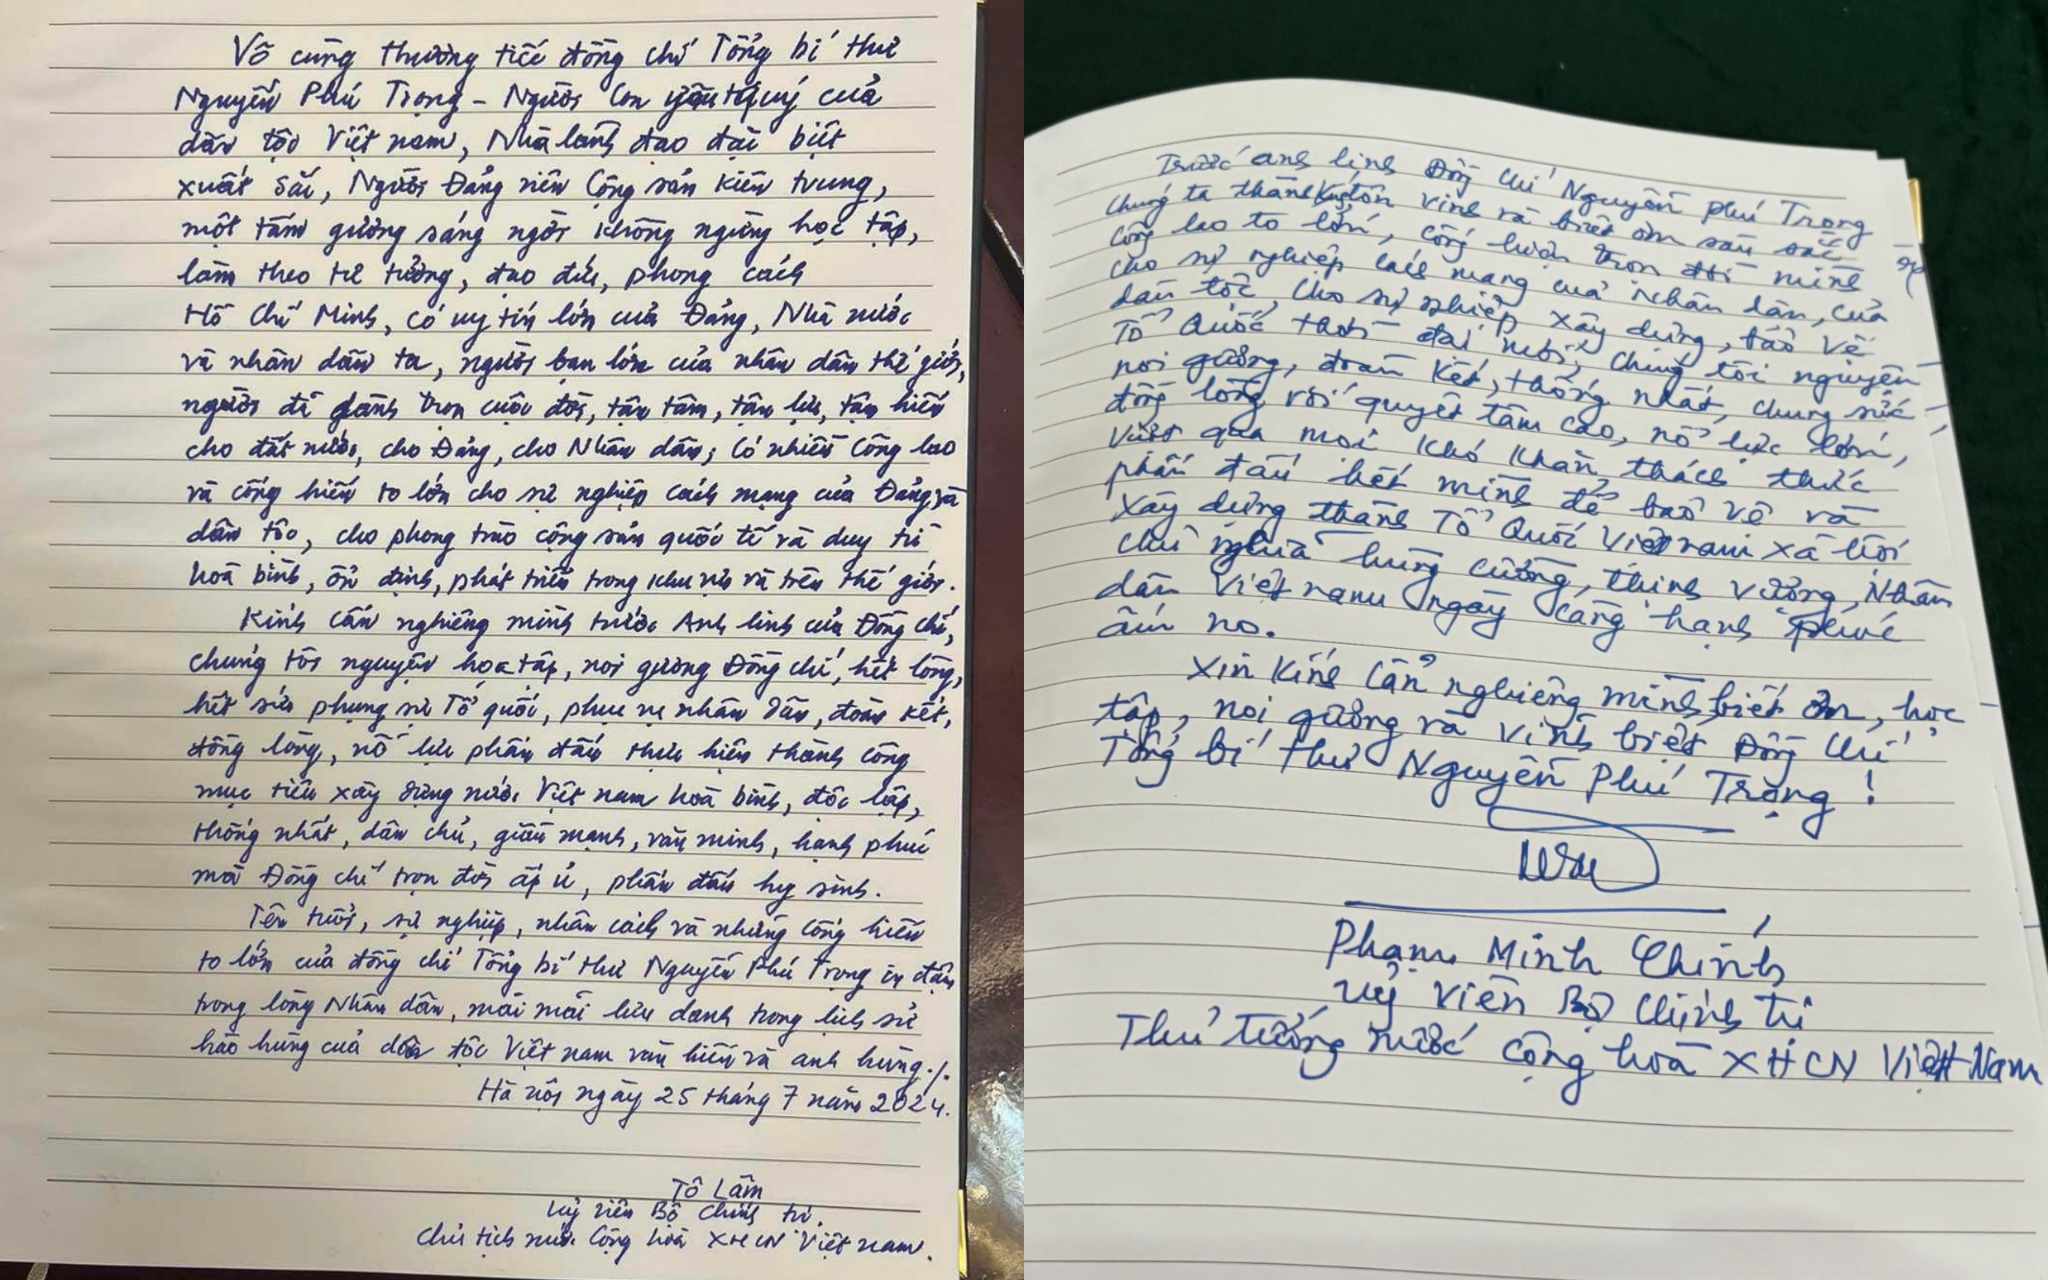 Vô cùng thương tiếc đồng chí Tổng bí thư
Nguyễn Phú Trọng - Người con yêu quý của
dân tộc Việt nam, Nhà lãnh đạo đặc biệt
xuất sắc, Người Đảng viên Cộng sản kiên trung,
một tấm gương sáng ngời không ngừng học tập,
làm theo tư tưởng, đạo đức, phong cách
Hồ Chí Minh, có uy tín lớn của Đảng, Nhà nước
và nhân dân ta, người bạn lớn của nhân dân thế giới,
người đã dành trọn cuộc đời, tận tâm, tận lực, tận hiến
cho đất nước, cho Đảng, cho Nhân dân; Có nhiều Công lao
và cống hiến to lớn cho sự nghiệp cách mạng của Đảng và
dân tộc, cho phong trào cộng sản quốc tế và duy trì
hoà bình, ổn định, phát triển trong khu vực và trên thế giới.
Kính cẩn nghiêng mình trước Anh linh của Đồng chí,
chúng tôi nguyện học tập, noi gương Đồng chí, hết lòng,
hết sức phụng sự Tổ quốc, phục vụ nhân dân, đoàn kết,
đồng lòng, nỗ lực phấn đấu thực hiện thành công
mục tiêu xây dựng nước Việt nam hoà bình, độc lập,
thống nhất, dân chủ, giàu mạnh, văn minh, hạnh phúc
mà Đồng chí trọn đời ấp ủ, phấn đấu hy sinh.
Tên tuổi, sự nghiệp, nhân cách và những cống hiến
to lớn của đồng chí Tổng bí thư Nguyễn Phú Trọng in đậm
trong lòng Nhân dân, mãi mãi lưu danh trong lịch sử
hào hùng của dân tộc Việt nam văn hiến và anh hùng./.
Hà nội ngày 25 tháng 7 năm 2024.
Tô Lâm
Uỷ viên Bộ Chính trị.
Chủ tịch nước Cộng hoà XHCN Việt nam.
Trước anh linh Đồng chí Nguyễn Phú Trọng
chúng ta thành kính tôn vinh và biết ơn sâu sắc
công lao to lớn, cống hiến trọn đời mình
cho sự nghiệp cách mạng của Nhân dân, của
dân tộc, cho sự nghiệp xây dựng, bảo vệ
Tổ Quốc thời đại mới, chúng tôi nguyện
noi gương, đoàn kết, thống nhất, chung sức
đồng lòng với quyết tâm cao, nỗ lực lớn,
vượt qua mọi khó khăn, thách thức
phấn đấu hết mình để bảo vệ và
xây dựng thành Tổ Quốc Việt nam xã hội
chủ nghĩa hùng cường, thịnh vượng, Nhân
dân Việt nam ngày càng hạnh phúc
ấm no.
Xin kính cẩn nghiêng mình, biết ơn, học
tập, noi gương và vĩnh biệt Đồng chí
Tổng bí thư Nguyễn Phú Trọng!
Phạm Minh Chính
Uỷ viên Bộ Chính trị
Thủ tướng nước Cộng hoà XHCN Việt Nam